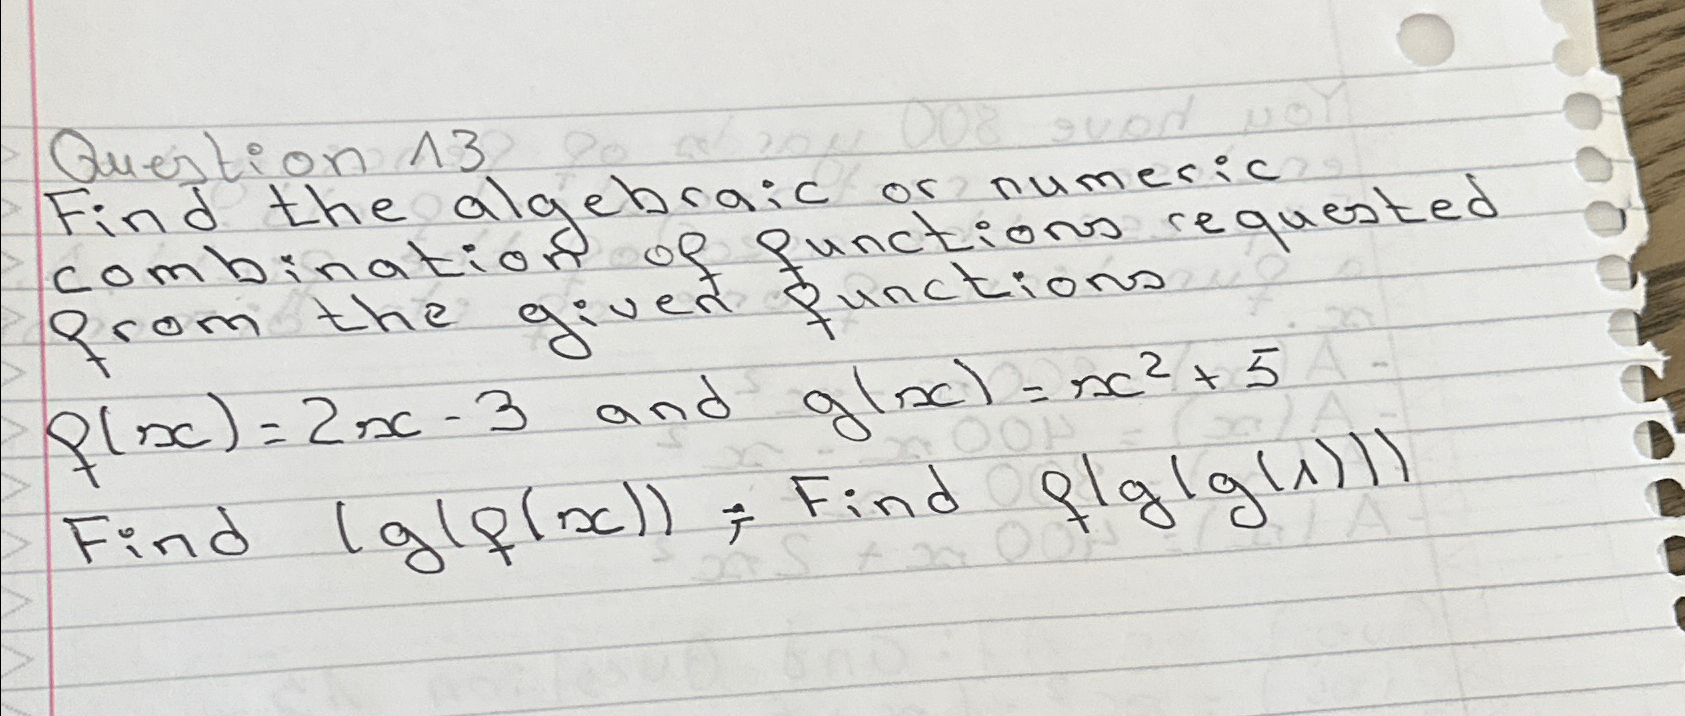 Question 13
Find the algebraic or numeric
combination of functions requested
from the given functions
f(x) = 2x - 3 and g(x) = x² + 5
Find (g(f(x)) ; Find f(g(g(1)))